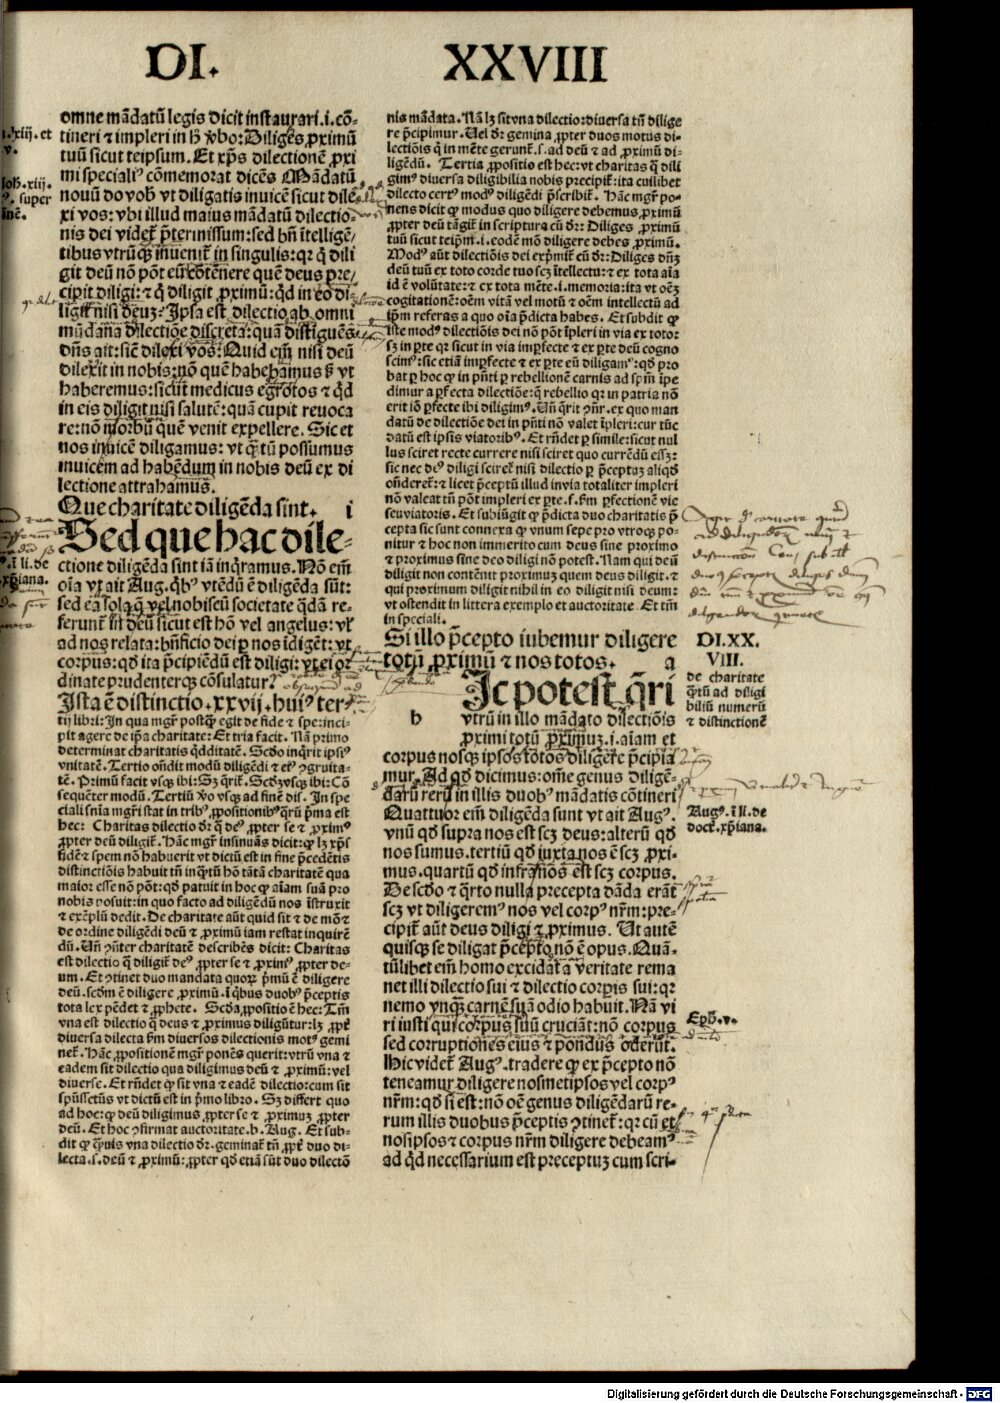 DI. XXVIII
omne mādatū legis dicit instaurari.i.cō-
tineri ⁊ impleri in h̄ v̄bo: Diliges ꝓximū
tuū sicut teipsum. Et xp̄s dilectionē ꝓxi
mi specialiꝰ cōmemorat dicēs Mādatū
nouū do vob̄ vt diligatis inuicē sicut dile-
xi vos: vbi illud maius mādatū dilectio-
nis dei videt᷑ p̄termissum: sed bn̄ ītelligē-
tibus vtrūqꝫ inuenit᷑ in singulis: qꝛ q̄ dili
git deū nō pōt eū cōtēnere quē deus pre-
cipit diligi: ⁊ q̄ diligit ꝓximū: qd̄ in eo di-
ligit nisi deuꝫ? Ipsa est dilectio ab omni
mūdana dilectiōe discreta: quā distiguēs
dn̄s ait: sic̄ dilexi vos. Quid em̄ nisi deū
dilexit in nobis: nō quē habebamus sꝫ vt
haberemus: sicut medicus egrotos ⁊ qd̄
in eis diligit nisi salutē: quā cupit reuoca
re: nō morbū quē venit expellere. Sic et
nos inuicē diligamus: vt qm̄tū possumus
inuicem ad habēdum in nobis deū ex di
lectione attrahamus.
Que charitate diligēda sint. i
Sed que hac dile-
ctione diligēda sint iā inq̄ramus. Nō em̄
oīa vt ait Aug. qb̓ vtēdū ē diligēda sūt:
sed ea sola q̄ vel nobiscū societate q̄dā re-
ferunt᷑ in deū sicut est hō vel angelus: vl̓
ad nos relata: bn̄ficio dei ꝑ nos īdigēt: vt
corpus: qd̄ ita p̄cipiēdū est diligi: vt ei or
dinate prudenterqꝫ cōsulatur?
Ista ē distinctio.xxvij.huiꝰ ter-
tij libri: In qua mgr̄ postqꝫ egit de fide ⁊ spe: inci-
pit agere de ip̄a charitate: Et tria facit. Nā primo
determinat charitatis qdditatē. Scdo inq̄rit ipsiꝰ
vnitatē. Tertio ondit modū diligēdi ⁊ eiꝰ ꝯgruita-
tē. Primū facit vsqꝫ ibi: Sꝫ q̄rit᷑. Scdꝫ vsqꝫ ibi: Cō
sequēter modū. Tertiū v̄o vsqꝫ ad finē dis. In spe
ciali snīa mgr̄i stat in trib̓ ꝓpositionib̓ q̄rū p̄ma est
hec: Charitas dilectio dꝛ q̄ deꝰ ꝓpter se ⁊ ꝓximꝰ
ꝓpter deū diligit᷑. Hāc mgr̄ insinuās dicit: ꝙ lꝫ xp̄s
fidē ⁊ spem nō habuerit vt dictū est in fine p̄cedētis
distinctiōis habuit tn̄ inq̄tū hō tātā charitatē qua
maior esse nō pōt: qd̄ patuit in hoc ꝙ aīam suā pro
nobis posuit: in quo facto ad diligēdū nos īstruxit
⁊ exēplū dedit. De charitate aūt quid sit ⁊ de mō ⁊
de ordine diligēdi deū ⁊ ꝓximū iam restat inquirē
dū. Uñ ꝯn̄ter charitatē describēs dicit: Charitas
est dilectio q̄ diligit᷑ deꝰ ꝓpter se ⁊ ꝓximꝰ ꝓpter de-
um. Et ꝯtinet duo mandata quoꝝ p̄mū ē diligere
deū. scdm ē diligere ꝓximū. ī qbus duob̓ p̄ceptis
tota lex pēdet ⁊ ꝓphete. Scda ꝓpositio ē hec: Tm̄
vna est dilectio q̄ deus ⁊ ꝓximus diligūtur: lꝫ ꝓpt̄
diuersa dilecta fm̄ diuersos dilectionis motꝰ gemi
net᷑. Hāc ꝓpositionē mgr̄ ponēs querit: vtrū vna ⁊
eadem sit dilectio qua diligimus deū ⁊ ꝓximū: vel
diuerse. Et rn̄det ꝙ sit vna ⁊ eadē dilectio: cum sit
spūssctūs vt dictū est in p̄mo libro. Sꝫ differt quo
ad hoc: ꝙ deū diligimus ꝓpter se ⁊ ꝓximuꝫ ꝓpter
deū. Et hoc ꝯfirmat auctoritate.b. Aug. Et sub-
dit ꝙ q̄uis vna dilectio dꝛ. geminat᷑ tn̄ ꝓpt̄ duo di-
lecta.s.deū ⁊ ꝓximū: ꝓpter qd̄ etiā sūt duo dilectō
nis mādata. Nā lꝫ sit vna dilectio: diuersa tn̄ dilige
re p̄cipimur. Uel dꝛ gemina ꝓpter duos motus di-
lectiōis q̄ in mēte gerunt᷑.s. ad deū ⁊ ad ꝓximū di-
ligēdū. Tertia ꝓpositio est hec: vt charitas q̄ dili
gimꝰ diuersa diligibilia nobis precipit᷑: ita cuilibet
dilecto certꝰ modꝰ diligēdi p̄scribit᷑. Hāc mgr̄ po-
nens dicit ꝙ modus quo diligere debemus ꝓximū
ꝓpter deū tāgit᷑ in scriptura cū dꝛ: Diliges ꝓximū
tuū sicut teip̄m.i. eodē mō diligere debes ꝓximū.
Modꝰ aūt dilectiōis dei exp̄mit᷑ cū dꝛ: Diliges dn̄ꝫ
deū tuū ex toto corde tuo scꝫ ītellectu: ⁊ ex tota aīa
id ē volūtate: ⁊ ex tota mēte.i. memoria: ita vt oēꝫ
cogitationē: oēm vitā vel motū ⁊ oēm intellectū ad
ip̄m referas a quo oīa p̄dicta habes. Et subdit ꝙ
iste modꝰ dilectiōis dei nō pōt īpleri in via ex toto:
sꝫ in ꝑte qꝛ sicut in via imꝑfecte ⁊ ex ꝑte deū cogno
scimꝰ: sic etiā imꝑfecte ⁊ ex ꝑte eū diligamꝰ: qd̄ pro
bat ꝑ hoc ꝙ in p̄nti ꝑ rebellionē carnis ad spm̄ īpe
dimur a ꝑfecta dilectiōe: q̄ rebellio qꝛ in patria nō
erit iō ꝑfecte ibi diligimꝰ. Uñ q̄rit ꝯn̄r. ex quo man
datū de dilectiōe dei in p̄nti nō valet īpleri: cur tūc
datū est ipsis viatorib̓. Et rn̄det ꝑ simile: sicut nul
lus sciret recte currere nisi sciret quo currēdū esꝫ:
sic nec deꝰ diligi sciret᷑ nisi dilectio ꝑ p̄ceptaꝫ aliqd̄
onderet᷑: ⁊ licet p̄ceptū illud in via totaliter impleri
nō valeat tn̄ pōt impleri ex ꝑte.s. fm̄ ꝑfectionē vie
seu viatoris. Et subiūgit ꝙ p̄dicta duo charitatis p̄
cepta sic sunt connexa ꝙ vnum sepe pro vtroqꝫ po-
nitur ⁊ hoc non immerito cum deus sine proximo
⁊ proximus sine deo diligi non potest. Nam qui deū
diligit non contēnit proximuꝫ quem deus diligit. ⁊
qui proximum diligit nihil in eo diligit nisi deum:
vt ostendit in littera exemplo et auctoritate. Et tm̄
in speciali.
Si illo p̄cepto iubemur diligere
totū ꝓximū ⁊ nos totos. a
Hic potest q̄ri
b vtrū in illo mādato dilectiōis
ꝓximi totū ꝓximuꝫ.i.aīam et
corpus nosqꝫ ipsos totos diligere p̄cipia
mur. Ad qd̄ dicimus: om̄e genus diligē-
darū rerū in illis duob̓ mādatis cōtineri
Quattuor em̄ diligēda sunt vt ait Augꝰ.
vnū qd̄ supra nos est scꝫ deus: alterū qd̄
nos sumus. tertiū qd̄ iuxta nos ē scꝫ ꝓxi-
mus. quartū qd̄ infra nos est scꝫ corpus.
De scdo ⁊ q̄rto nulla precepta dāda erāt
scꝫ vt diligeremꝰ nos vel corpꝰ nr̄m: pre-
cipit᷑ aūt deus diligi ⁊ ꝓximus. Ut autē
quisqꝫ se diligat p̄cepto nō ē opus. Quā-
tūlibet em̄ homo excidat a veritate rema
net illi dilectio sui ⁊ dilectio corꝑis sui: qꝛ
nemo vnqꝫ carnē suā odio habuit. Nā vi
ri iusti qui corpus suū cruciāt: nō corpus
sed corruptiones eius ⁊ pondus oderūt.
Hic videt᷑ Augꝰ. tradere ꝙ ex p̄cepto nō
teneamur diligere nosmetipsos vel corpꝰ
nr̄m: qd̄ si est: nō oē genus diligēdarū re-
rum illis duobus p̄ceptis ꝯtinet᷑: qꝛ cū et
nosipsos ⁊ corpus nr̄m diligere debeamꝰ
ad qd̄ necessarium est preceptuꝫ cum scri-
Joh̄.xiij.
super
li. de
xp̄iana.
DI.XX.
VIII.
de charitate
q̄tū ad diligi
biliū numerū
⁊ distinctionē
Augꝰ. ī li. de
doct᷑. xp̄iana.
Eph̄.v.
Digitalisierung gefördert durch die Deutsche Forschungsgemeinschaft - DFG